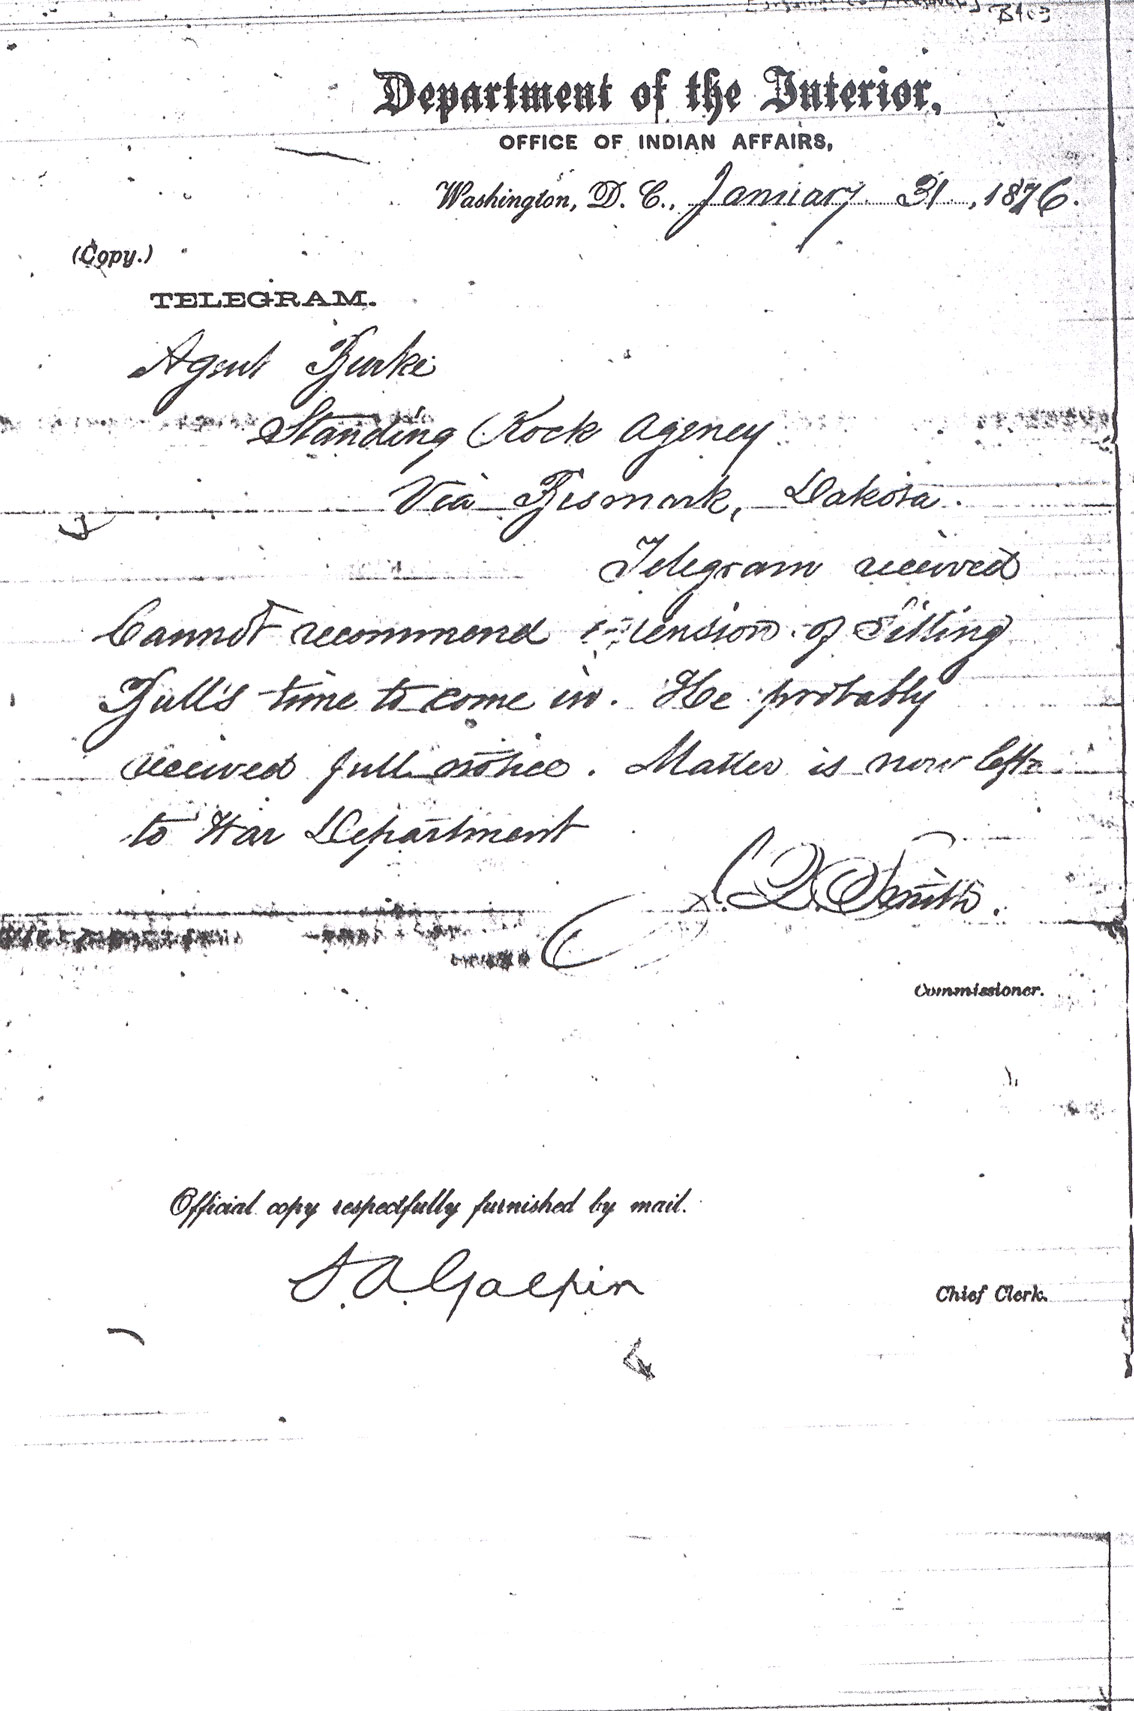 B403
Department of the Interior,
OFFICE OF INDIAN AFFAIRS,
Washington, D. C., January 31, 1876.
(Copy.)
TELEGRAM.
Agent Burke
Standing Rock Agency
Via Bismark, Dakota.
Telegram received
Cannot recommend extension of Sitting
Bull's time to come in. He probably
received full notice. Matter is now left
to War Department
Smith.
Commissioner.
Official copy respectfully furnished by mail.
S. A. Galpin
Chief Clerk.